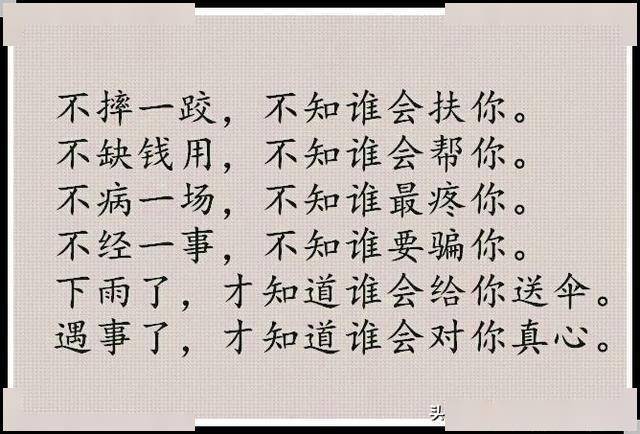 不摔一跤，不知谁会扶你。
不缺钱用，不知谁会帮你。
不病一场，不知谁最疼你。
不经一事，不知谁要骗你。
下雨了，才知道谁会给你送伞。
遇事了，才知道谁会对你真心。
头